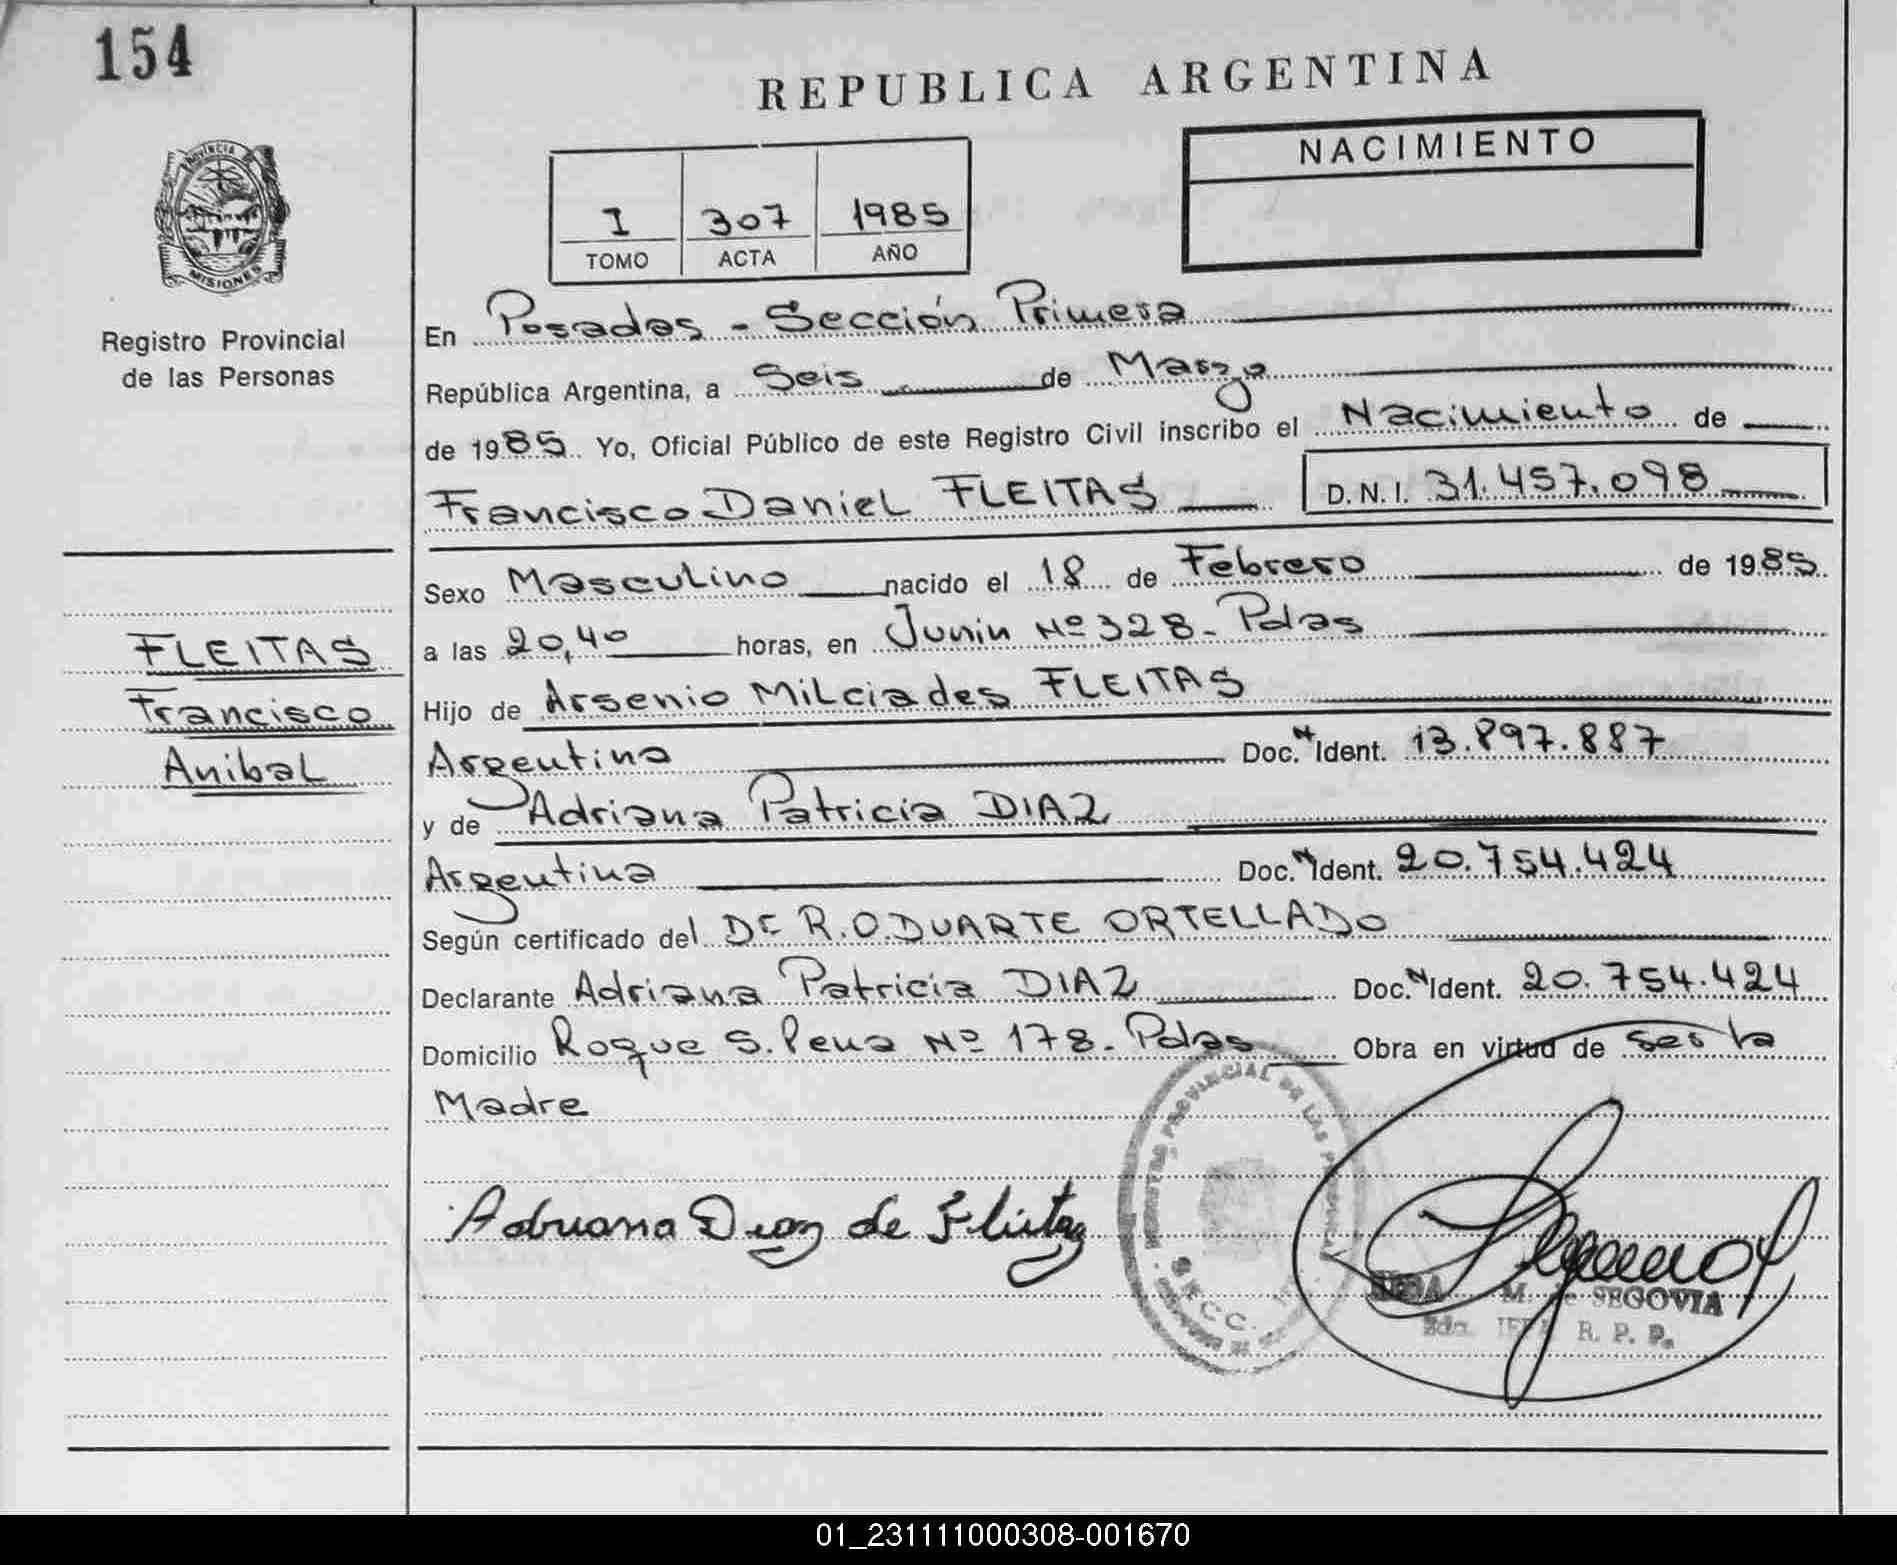 154
REPUBLICA ARGENTINA
PROVINCIA DE
MISIONES
Registro Provincial
de las Personas
I 307 1985
TOMO ACTA AÑO
NACIMIENTO
En Posadas - Sección Primera
República Argentina, a Seis de Marzo
de 1985. Yo, Oficial Público de este Registro Civil inscribo el Nacimiento de
Francisco Daniel FLEITAS D.N.I. 31.457.098
Sexo Masculino nacido el 18 de Febrero de 1985
a las 20,40 horas, en Junin Nº 328 - Pdas
Hijo de Arsenio Milciades FLEITAS
Argentina Doc. N Ident. 13.897.887
y de Adriana Patricia DIAZ
Argentina Doc. N Ident. 20.754.424
Según certificado del Dr R.O. DUARTE ORTELLADO
Declarante Adriana Patricia DIAZ Doc. N Ident. 20.754.424
Domicilio Roque S. Pena Nº 178 - Pdas Obra en virtud de ser la
Madre
FLEITAS
Francisco
Anibal
Adriana Diaz de Fleitas
REGISTRO PROVINCIAL DE LAS PERSONAS
SECC.
M. de SEGOVIA
2da. JEFE R. P. P.
01_231111000308-001670